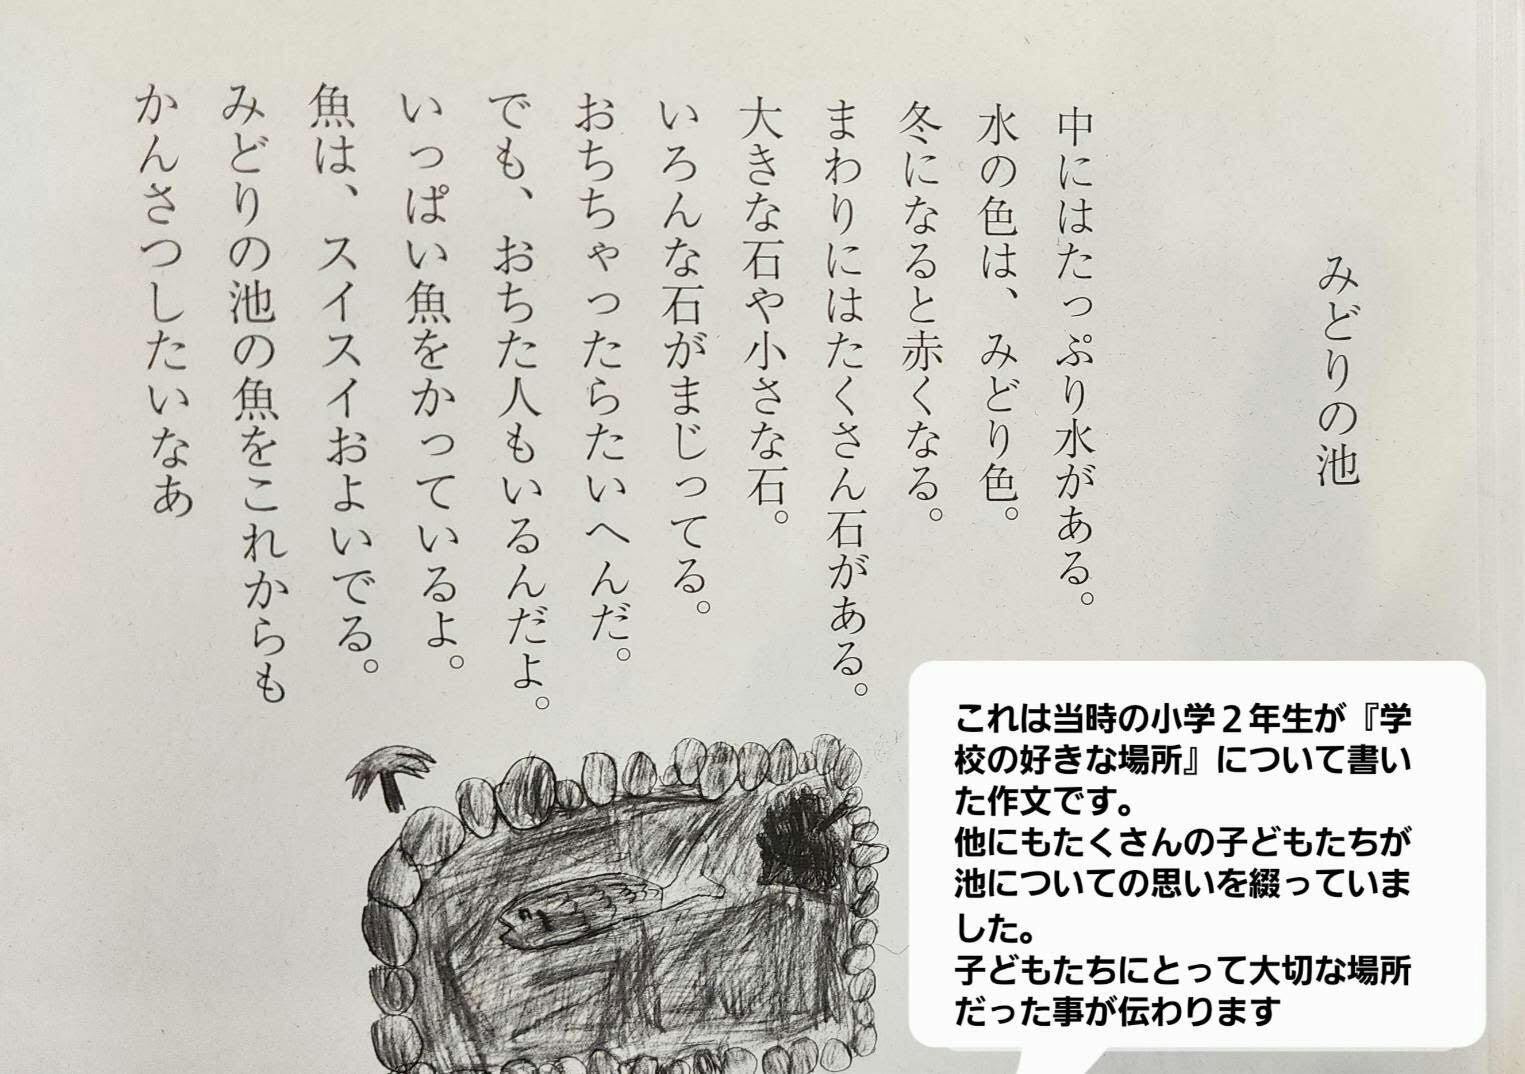 みどりの池
中にはたっぷり水がある。
水の色は、みどり色。
冬になると赤くなる。
まわりにはたくさん石がある。
大きな石や小さな石。
いろんな石がまじってる。
おちちゃったらたいへんだ。
でも、おちた人もいるんだよ。
いっぱい魚をかっているよ。
魚は、スイスイおよいでる。
みどりの池の魚をこれからも
かんさつしたいなあ
これは当時の小学２年生が『学
校の好きな場所』について書い
た作文です。
他にもたくさんの子どもたちが
池についての思いを綴っていま
した。
子どもたちにとって大切な場所
だった事が伝わります